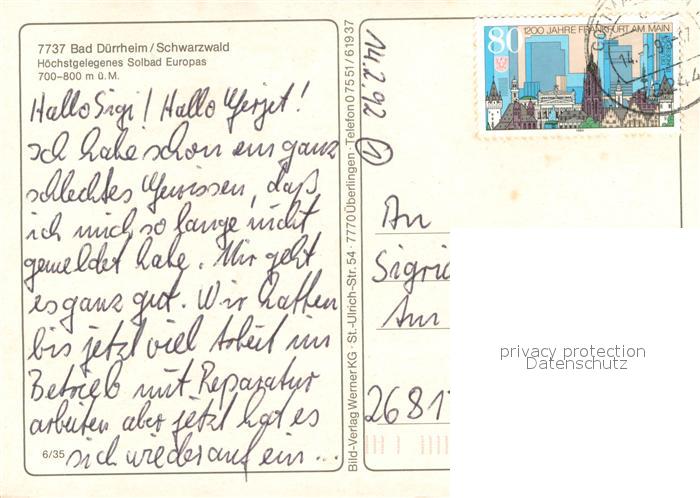 7737 Bad Dürrheim/Schwarzwald
Höchstgelegenes Solbad Europas
700–800 m ü. M.
Hallo Sigi! Hallo Gerjet!
ich habe schon ein ganz
schlechtes Gewissen, daß
ich mich so lange nicht
gemeldet habe. Mir geht
es ganz gut. Wir hatten
bis jetzt viel Arbeit im
Betrieb mit Reparatur
arbeiten aber jetzt hat es
sich wieder auf ein...
6/35
Bild-Verlag Werner KG · St.-Ulrich-Str. 54 · 7770 Überlingen · Telefon 07551/61937
14.2.92
1
80
1200 JAHRE FRANKFURT AM MAIN
An
Sigri
Am
2681
privacy protection
Datenschutz